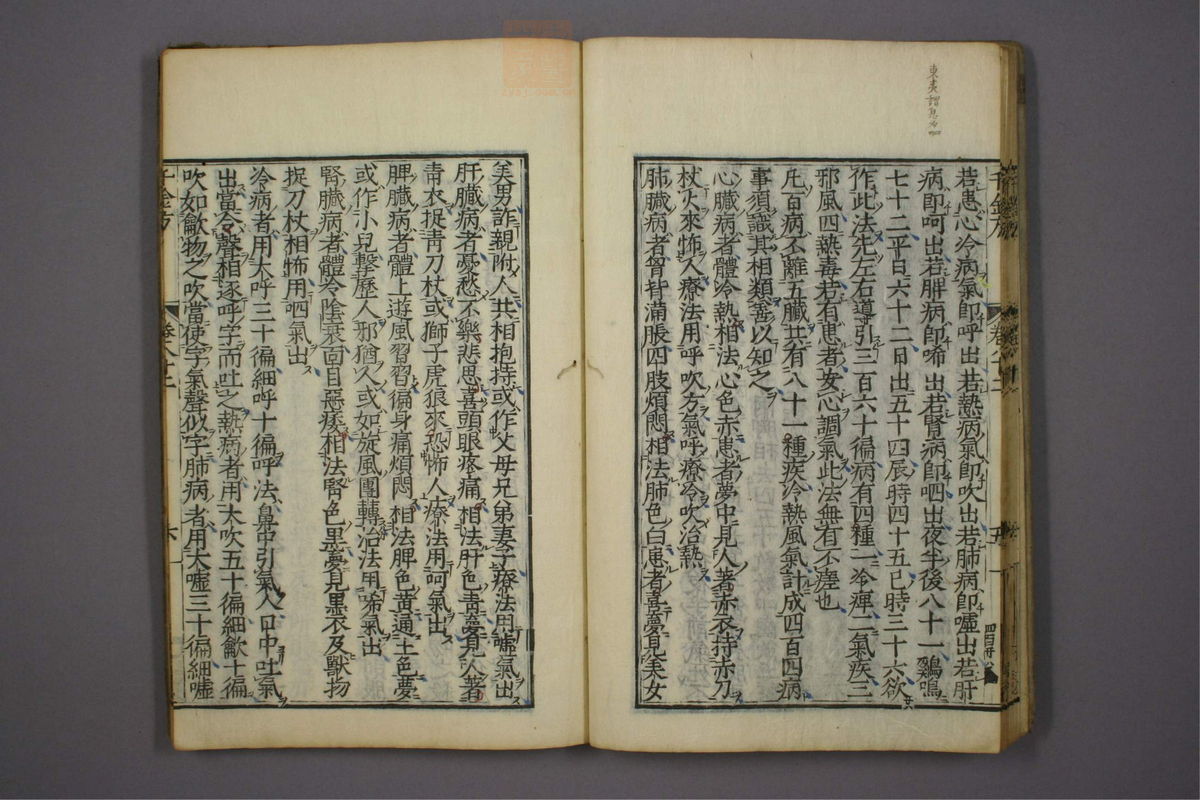 若患心冷病氣即呼出若熱病氣即吹出若肺病即噓出若肝
病即呵出若脾病即唏出若腎病即呬出夜半後八十一鷄鳴
七十二平旦六十三日出五十四辰時四十五巳時三十六欲
作此法先左右導引三百六十徧病有四種一冷痺二氣疾三
邪風四熱毒若有患者安心調氣此法無有不瘥也
凡百病不離五臟共有八十一種疾冷熱風氣計成四百四病
事須識其相類善以知之
心臟病者體冷熱相法心色赤患者夢中見人著赤衣持赤刀
杖火來怖人療法用呼吹方氣呼療冷吹治熱
肺臟病者胷背滿脹四肢煩悶相法肺色白患者喜夢見美女
美男詐親附人共相抱持或作父母兄弟妻子療法用噓氣出
肝臟病者憂愁不樂悲思喜頭眼疼痛相法肝色青夢見人著
青衣捉青刀杖或獅子虎狼來恐怖人療法用呵氣出
脾臟病者體上遊風習習徧身痛煩悶相法脾色黃通土色夢
或作小兒擊歷人邪猶人或如旋風團轉治法用唏氣出
腎臟病者體冷陰衰面目惡痿相法腎色黑夢見黑衣及獸物
捉刀杖相怖用呬氣出
冷病者用大呼三十徧細呼十徧呼法鼻中引氣入口中吐氣
出當令聲相逐呼字而吐之熱病者用大吹五十徧細歙十徧
吹如歙物之吹當使字氣聲似字肺病者用大噓三十徧細噓
千金方
卷八十二
六